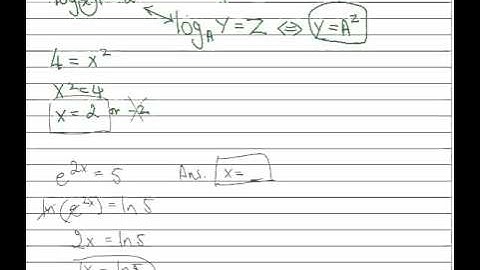 log_A Y = Z ⇔ Y = A^Z
4 = x²
x² = 4
x = 2 or -2
e^{2x} = 5 Ans. x = _
ln(e^{2x}) = ln 5
2x = ln 5